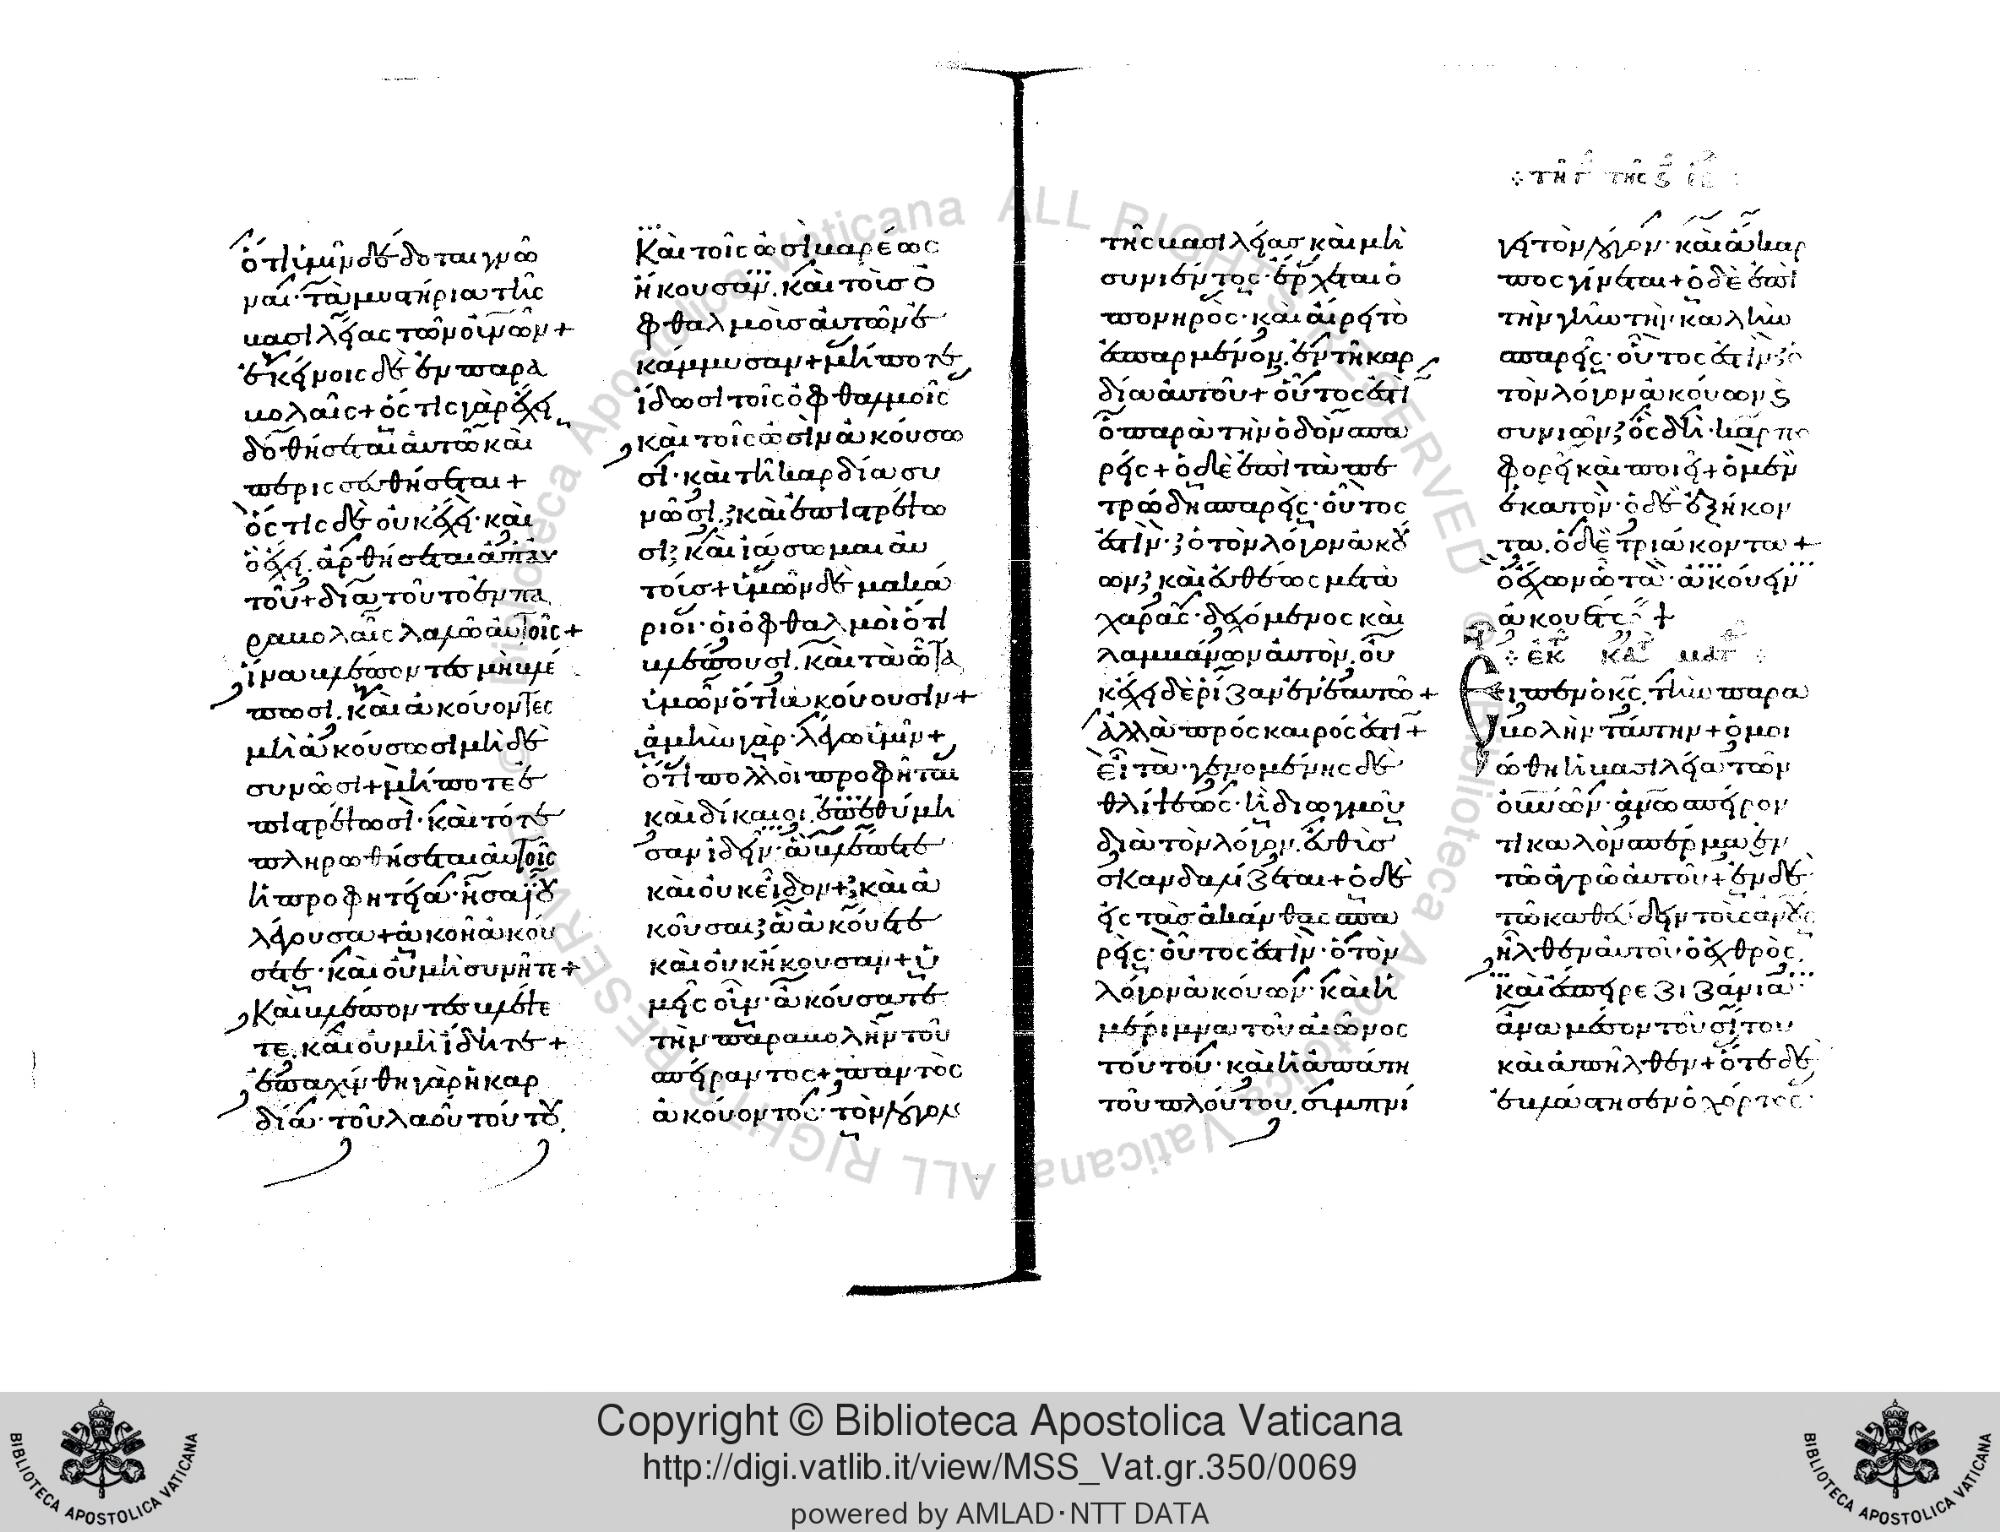 ὅτι ὑμῖν δέδοται γνῶ
ναι· τὰ μυστήρια τῆς
βασιλείας τῶν οὐρανῶν +
ἐκείνοις δὲ ἐν παρα
βολαῖς + ὅς τις γὰρ ἔχει,
δοθήσεται αὐτῶ καὶ
περισσωθήσεται +
ὅς τις δὲ οὐκ ἔχει· καὶ
ὃ ἔχει. ἀρθήσεται ἀπ αυ
τοῦ + διατοῦτο ἐν πα
ραβολαῖς λαλῶ αὐτοῖς +
ἵνα βλέποντες μὴ βλέ
πωσι. καὶ ἀκούοντες
μὴ ἀκούσωσι μὴ δὲ
συνῶσι + μήποτε ἐ
πιστρέψωσι· καὶ τότε
πληρωθήσεται αὐτοῖς
ἡ προφητεία· ἡσαΐου
λέγουσα + ἀκοῆ ἀκού
σετε· καὶ οὐ μὴ συνῆτε +
Καὶ βλέποντες βλέψε
τε. καὶ οὐ μὴ ἴδητε +
ἐπαχύνθη γὰρ ἡ καρ
δία· τοῦ λαοῦ τούτου.
Καὶ τοῖς ὠσὶ βαρέως
ἤκουσαν. καὶ τοὺς ὀ
φθαλμοὺς αὐτῶν ἐ
κάμμυσαν + μήποτε
ἴδωσι τοῖς ὀφθαλμοῖς
καὶ τοῖς ὠσὶν ἀκούσω
σι· καὶ τῆ καρδία συ
νῶσι. καὶ ἐπιστρέψω
σι· καὶ ἰάσωμαι αὐ
τούς + ὑμῶν δὲ μακά
ριοι· οἱ ὀφθαλμοὶ ὅτι
βλέπουσι. καὶ τὰ ὦτα
ὑμῶν ὅτι ἀκούουσιν +
ἀμὴν γὰρ· λέγω ὑμῖν +
ὅτι πολλοὶ προφῆται
καὶ δίκαιοι. ἐπεθύμη
σαν ἰδεῖν· ἃ βλέπετε
καὶ οὐκ εἶδον + καὶ ἀ
κοῦσαι ἃ ἀκούετε
καὶ οὐκ ἤκουσαν + ὑ
μεῖς οὖν· ἀκούσατε
τὴν παραβολὴν τοῦ
σπείραντος + παντὸς
ἀκούοντος· τὸν λόγον
τῆς βασιλείας καὶ μὴ
συνιέντος· ἔρχεται ὁ
πονηρὸς· καὶ αἴρει τὸ
ἐσπαρμένον. ἐν τῆ καρ
δία αὐτοῦ + οὗτος ἐστὶ
ὁ παρὰ τὴν ὁδὸν σπα
ρείς + ὁ δὲ ἐπὶ τὰ πε
τρώδη σπαρεὶς· οὗτος
ἐστὶν· ὁ τὸν λόγον ἀκού
ων καὶ εὐθέως μετὰ
χαρᾶς· δεχόμενος καὶ
λαμβάνων αὐτὸν. οὐ
κ ἔχει δὲ ῥίζαν ἐν ἑαυτῶ +
Ἀλλὰ πρός καιρός ἐστι +
εἶτα· γενομένης δὲ
θλίψεως· ἢ διωγμοῦ
διὰ τὸν λόγον. εὐθὺς
σκανδαλίζεται + ὁ δὲ
εἰς τὰς ἀκάνθας σπα
ρεὶς· οὗτος ἐστὶν· ὁ τὸν
λόγον ἀκούων· καὶ ἡ
μέριμνα τοῦ αἰῶνος
τούτου· καὶ ἡ ἀπάτη
τοῦ πλούτου. συμπνί
τῆ γ τῆς ξ
γει τὸν λόγον· καὶ ἄκαρ
πος γίνεται + ὁ δὲ ἐπὶ
τὴν γῆν τὴν καλὴν
σπαρεὶς· οὗτος ἐστὶν ὁ
τὸν λόγον ἀκούων κ
συνιῶν· ὃς δὴ· καρπο
φορεῖ καὶ ποιεῖ + ὁ μὲν
ἑκατὸν· ὁ δὲ ἑξήκον
τα. ὁ δὲ τριάκοντα +
ὁ ἔχων ὦτα· ἀκούειν
ἀκουέτω +
ἐκ κατ ματ
Εἶπεν ὁ κς, τὴν παρα
βολὴν ταύτην + ὁμοι
ώθη ἡ βασιλεία τῶν
οὐνῶν· ἀνω σπείρον
τι καλὸν σπέρμα ἐν
τῶ ἀγρῶ αὐτοῦ + ἐν δὲ
τῶ καθεύδειν τοὺς ἀνους
ἦλθεν αὐτοῦ ὁ ἐχθρὸς,
καὶ ἔσπειρε ζιζάνια·
ἀνα μέσον τοῦ σίτου
καὶ ἀπῆλθεν + ὅτε δὲ
ἐβλάστησεν ὁ χόρτος·
Copyright © Biblioteca Apostolica Vaticana
http://digi.vatlib.it/view/MSS_Vat.gr.350/0069
powered by AMLAD·NTT DATA
BIBLIOTECA APOSTOLICA VATICANA
BIBLIOTECA APOSTOLICA VATICANA